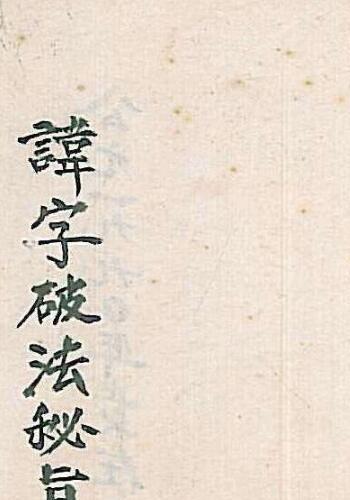 諱字破法秘旨